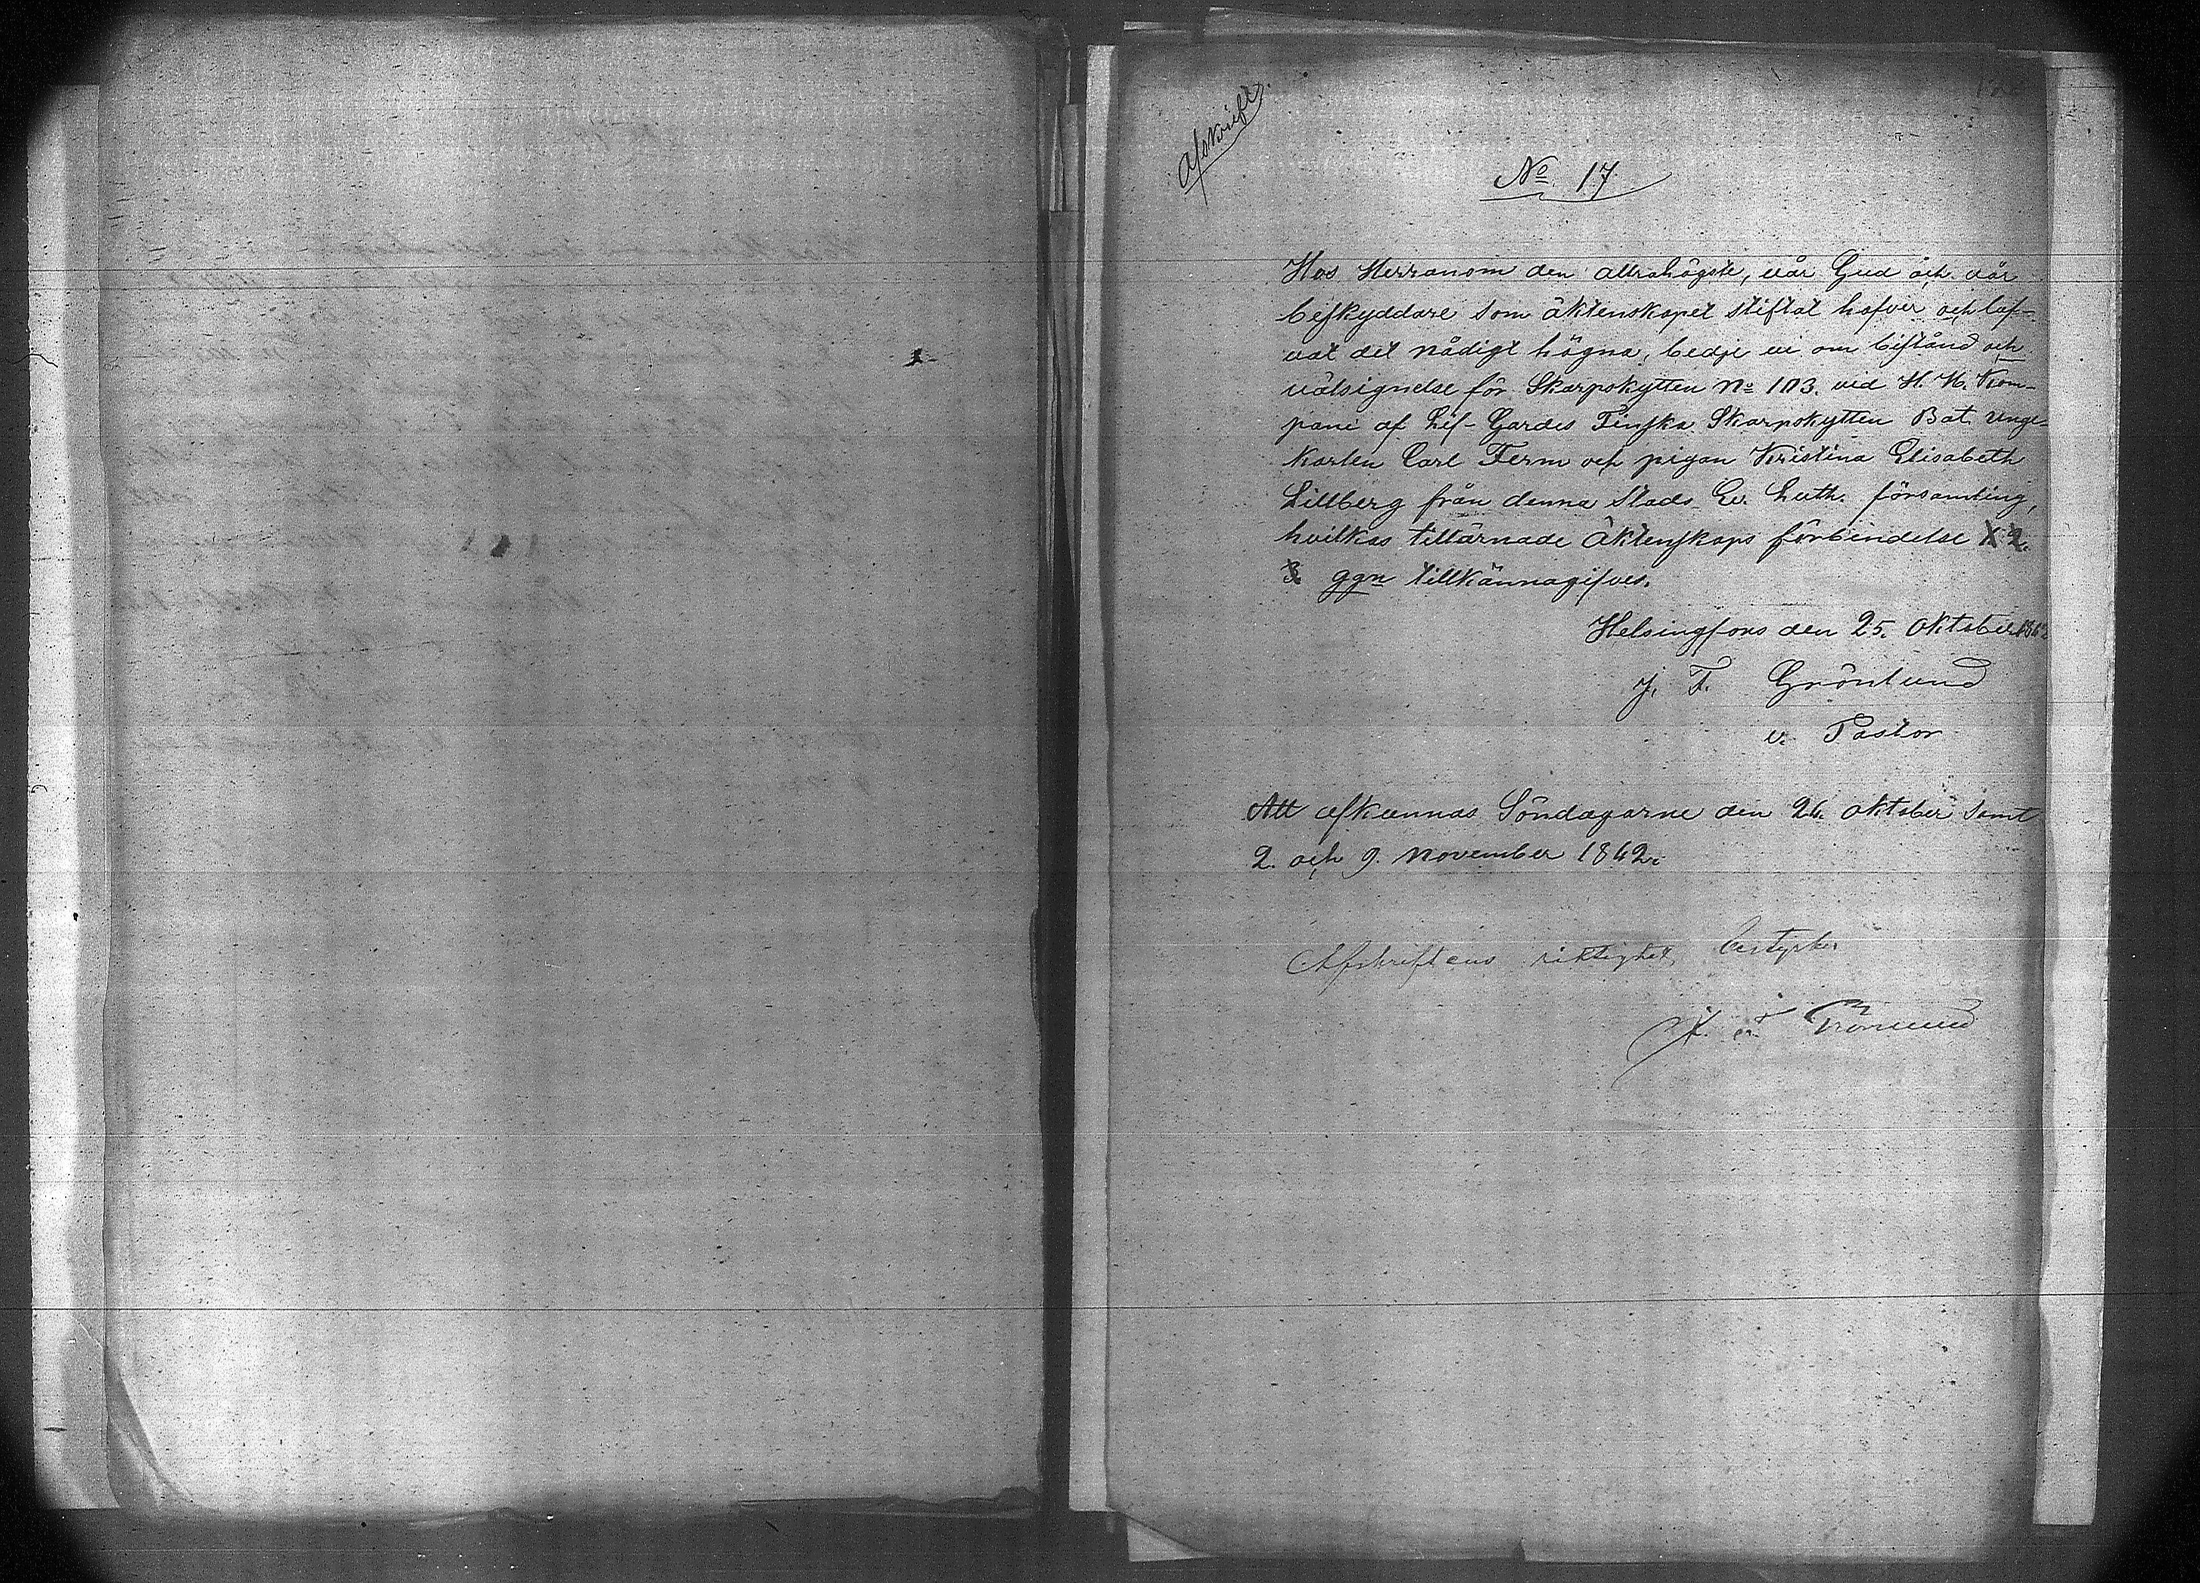 Afskrift.
No 17
Hos Herranom den allrahögste, vår Gud och vår
beskyddare som äktenskapet stiftat hafver och låf-
vat det nådigt hägna, bedje vi om bistånd och
välsignelse för Skarpskytten No 103. vid H. M. Kom-
pani af Lif-Gardes Finska Skarpskytten Bat. unge-
karlen Carl Ferm och pigan Kristina Elisabeth
Lillberg från denna Stads Ev. Luth. församling,
hvilkas tillärnade Äktenskaps förbindelse 1. 2.
3. ggn tillkännagifves.
Helsingfors den 25. Oktober 1862
J. F. Grönlund
v. Pastor
Att afkunnas Söndagarne den 26. Oktober samt
2. och 9. November 1862.
Afskriftens riktighet bestyrker